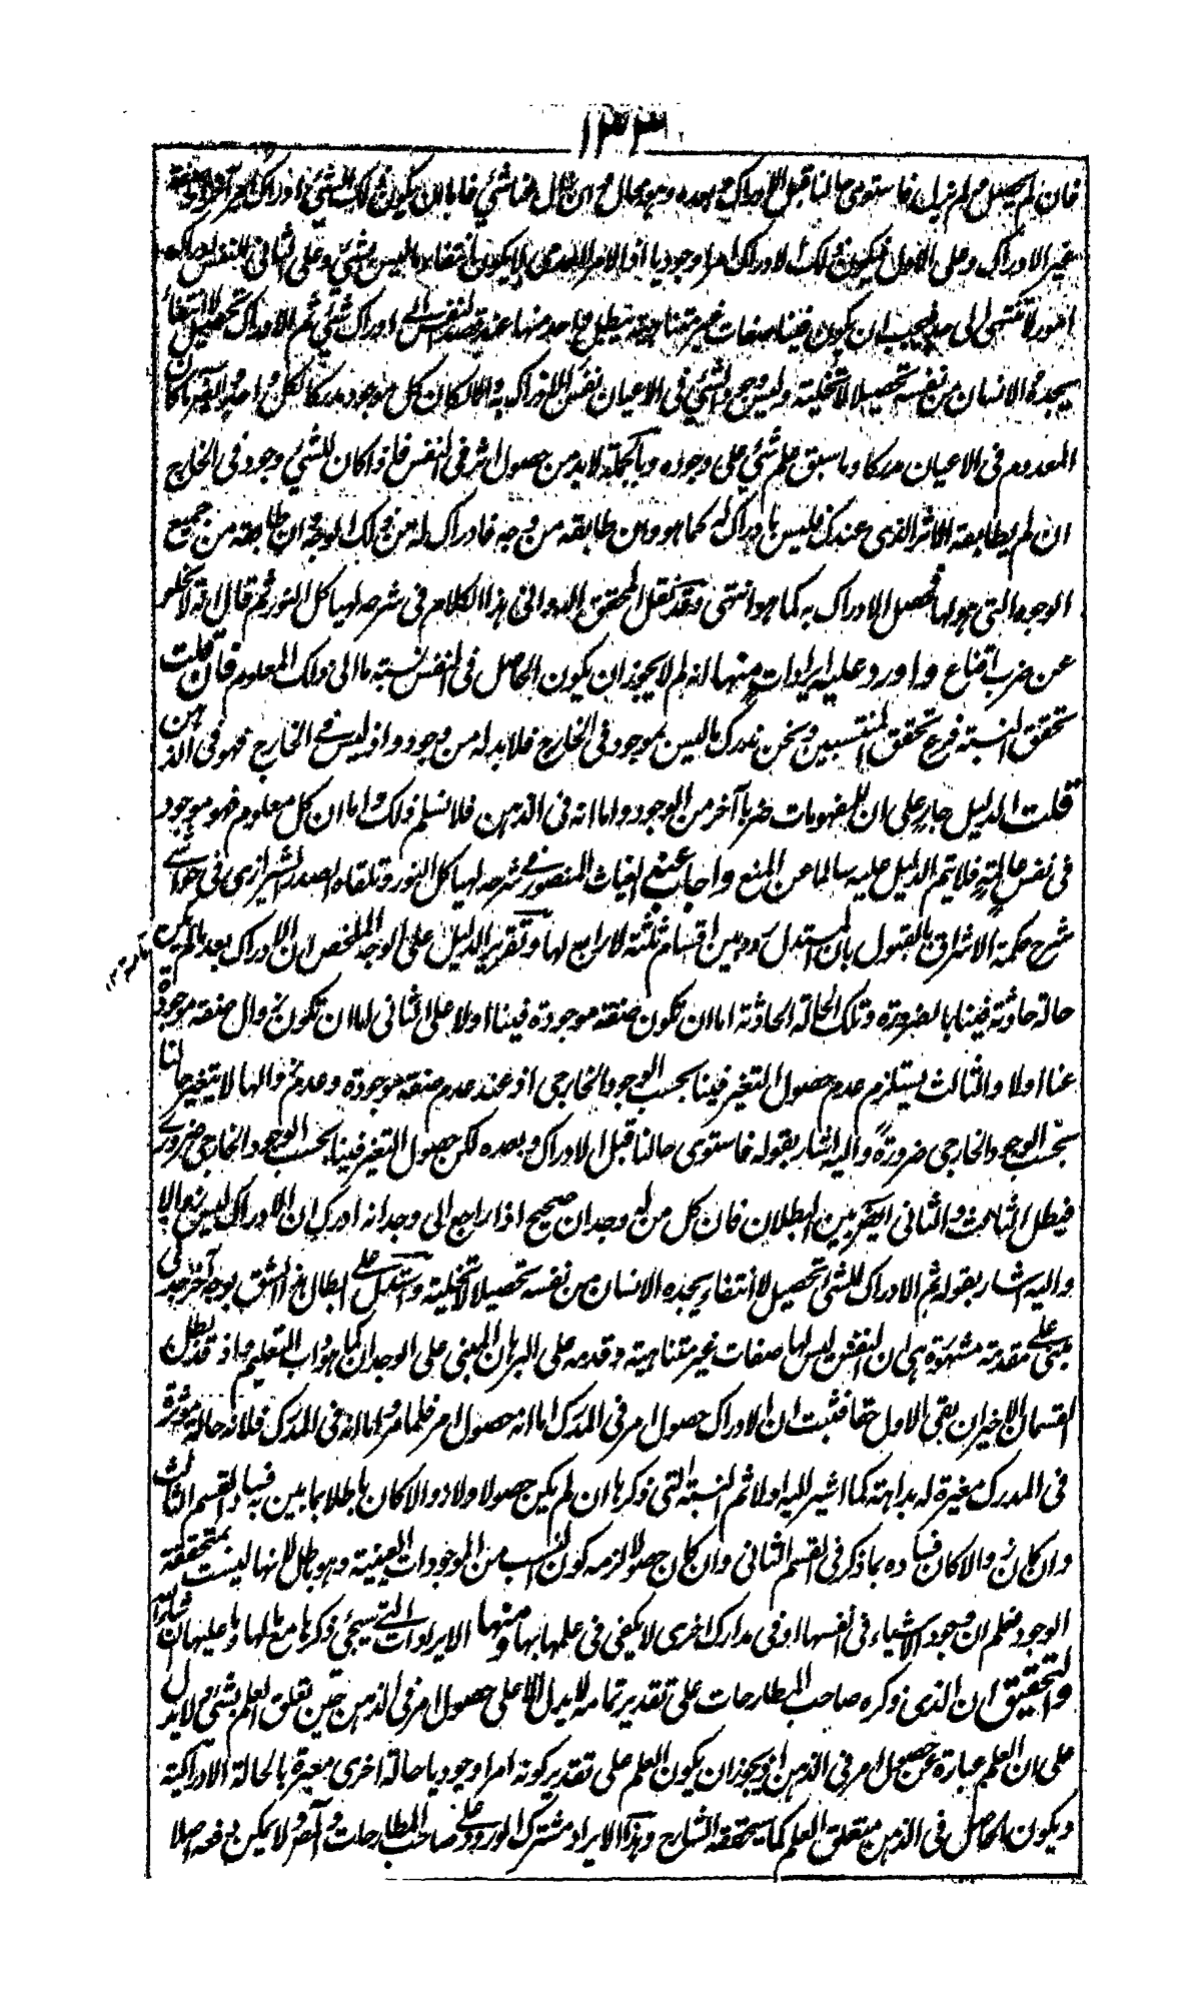 ١٣٣
فان لم يحصل ولم يزل فاستوى حالنا قبل الادراك وبعده وهو محال وان زال عنا شئ فاما ان يكون ذلك الشئ ادراك امر آخر او صفة
غير الادراك وعلى الاول فيكون ذلك الادراك امرا وجوديا اذ الامر العدمى لا يكون انتفاءه ما ليس بشئ وعلى الثانى فللنفس ادراك
امور لا تنتهى الى حد فيجب ان يكون فينا صفات غير متناهية يبطل واحد منها عند قصد النفس الى ادراك شئ ثم الادراك تحصيل لا انتفاء
يجده الانسان من نفسه تحصيلا لا تخلية وليس وجود الشئ فى الاعيان نفس الادراك به والا لكان كل موجود مدركا لكل واحد ولا يتصور ما كان
المعدوم فى الاعيان مدركا وما سبق علم شئ على وجوده وبالجملة لابد من حصول اثر فى النفس فاذا كان للشئ وجود فى الخارج
ان لم يطابقه الاثر الذى عندك فليس بادراك له كما هو وان طابقه من وجه فادراك له من ذلك الوجه وان طابقه من جميع
الوجوه التى هو لها فحصل الادراك به كما هو انتهى وقد نقل المحقق الدوانى هذا الكلام فى شرحه لهياكل النور ثم قال انه لا يخلو
عن ضرب اقناع واورد عليه ايرادات منها انه لم لا يجوز ان يكون الحاصل فى النفس نسبة ما الى ذلك المعلوم فان قلت
تحقق النسبة فرع تحقق المنتسبين ونحن ندرك ما ليس بموجود فى الخارج فلابد له من وجود واذ ليس فى الخارج فهو فى الذهن
قلت الدليل جار على ان للمفهومات ضربا آخر من الوجود واما انه فى الذهن فلا نسلم ذلك واما ان كل معلوم فهو موجود
فى نفس عالمه فلا يتم الدليل عليه سالما عن المنع واجاب عنه الغياث المنصور فى شرحه لهياكل النور وتلقاه الصدر الشيرازى فى حواشى
شرح حكمة الاشراق بالقبول بان المستدل ردد بين اقسام ثلثة لا رابع لها وتقرير الدليل على الوجه الملخص ان الادراك بعد ما لم يكن
حالة حادثة فينا بالضرورة وتلك الحالة الحادثة اما ان تكون صفة موجودة فينا اولا وعلى الثانى اما ان تكون زوال صفة موجودة
عنا اولا والثالث يستلزم عدم حصول التغير فينا بحسب الوجود الخارجى اذ عند عدم صفة موجودة وعدم زوالها لا يتغير حالنا
بحسب الوجود الخارجى ضرورة واليه اشار بقوله فاستوى حالنا قبل الادراك وبعده لكن حصول التغير فينا بحسب الوجود الخارجى ضرورى
فبطل الثالث والثانى ايضا بين البطلان فان كل من له وجدان صحيح اذا راجع الى وجدانه ادرك ان الادراك ليس زوالا
واليه اشار بقوله ثم الادراك للشئ تحصيل لا انتفاء يجده الانسان من نفسه تحصيلا لا تخلية واستدل على ابطال هذا الشق بوجه آخر جدلى
مبنى على مقدمة مشهورة هى ان النفس ليس لها صفات غير متناهية وقدمه على البرهان المبنى على الوجدان كما هو داب التعليم واذ قد بطل
القسمان الاخيران بقى الاول حقا فثبت ان الادراك حصول امر فى المدرك اما انه حصول امر فلما مر واما انه فى المدرك فلانه حالة مؤثرة
فى المدرك مغيرة له بداهة كما اشير اليه اولا ثم النسبة التى ذكرها ان لم يكن حصولا ولا زوالا كان باطلا بما بين به فساد القسم الثالث
وان كان زوالا كان فساده بما ذكر فى القسم الثانى وان كان حصولا لزمه كون النسب من الموجودات العينية وهو باطل لانها ليست بمتحققة
الوجود فعلم ان وجود الاشياء فى انفسها او فى مدارك اخرى لا يكفى فى علمها بها ومنها الايرادات التى سيجئ ذكرها مع مالها وما عليها ان شاء الله
والتحقيق ان الذى ذكره صاحب المطارحات على تقدير تمامه لا يدل الا على حصول امر فى الذهن حين تعلق العلم بشئ ولا يدل
على ان العلم عبارة عن حصول امر فى الذهن اذ يجوز ان يكون العلم على تقدير كونه امرا وجوديا حالة اخرى معبرة بالحالة الادراكية
ويكون الحاصل فى الذهن متعلق العلم كما سيحققه الشارح وهذا الايراد مشترك الورود على صاحب المطارحات وآخر ولا يمكن دفعه اصلا